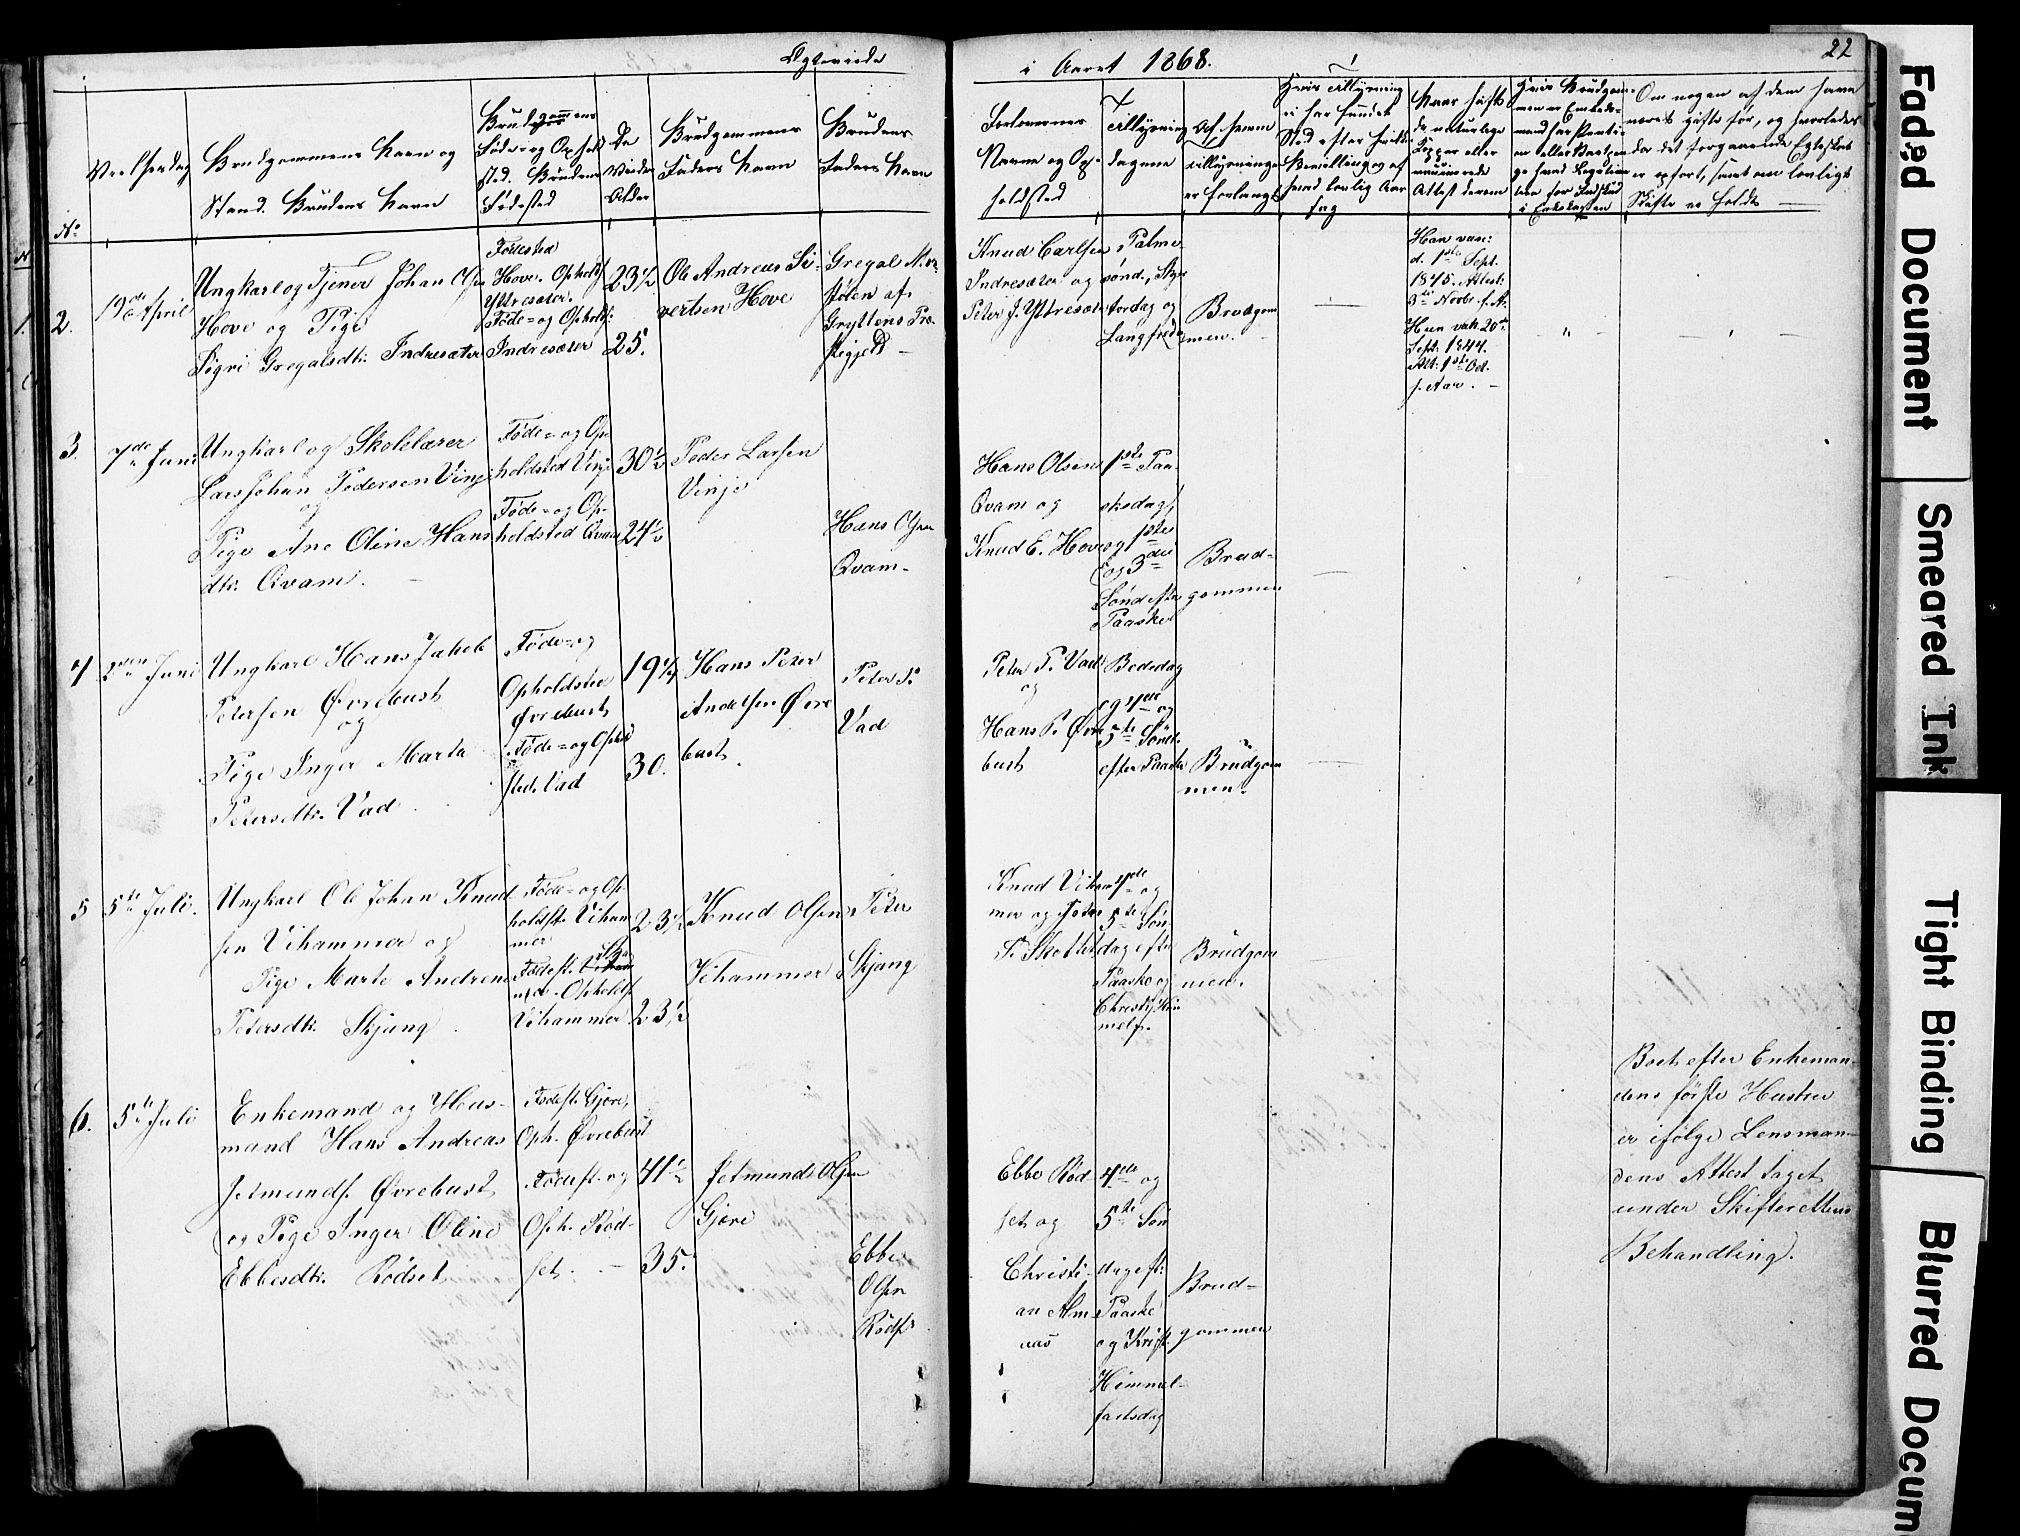 Ægteviede
i Aaret 1868.
22
No
Vielsesdag
Brudgommens Navn og
Stand. Brudens Navn
Brudgommens
Føde- og Ophold
sted. Brudens
Fødested
De
Viedes
Alder
Brudgommens
Faders Navn
Brudens
Faders Navn
Forlovernes
Navne og Op-
holdsted
Tillysning
dagene
Af hvem
tillysningen
er forlangt
Hvis Tillysning
ei har fundet
Sted efter hvilken
Bevilling og af
hvad lovlig Aar
sag
Naar hafte
de naturlige
Kopper eller
vaccinerede
Attest derom
Om nogen af dem have
været gifte før, og hvorledes
da det forgaaende Egteskab
er ophørt, samt om lovligt
Skifte er holdt
2.
19de April
Ungkarl og Tjener Johan Olsen
Hove og Pige
Sigri Gregalsdtr. Indresæter
Fødested
Hove. Opholdsst
Yttresæter.
Føde- og Opholdst:
Indresæter
23½
25.
Ole Andreas Si-
vertsen Hove
Gregal
støten af
Gryttens Præ-
stegjeld
Knud Carlsen
Indresæter og
Peter J. Yttresæter
Palme-
sønd., Skjær
torsdag og
Langfreda
Brudgom
men.
Han vac:
d. 1ste Sept.
1845. Attest:
3die Novbr. s. A.
Hun vak. 20de
Sept. 1844.
Att: 1ste Oct.
s. Aar.
3.
7de Juni
Ungkarl og Skolelærer
Lars Johan Pedersen Vinje
og
Pige Ane Oline Hans
dtr. Qvam.
Føde- og Op-
holdsted Vinje
Føde- og Op-
holdsted Qvam
30½
24½
Peder Larsen
Vinje
Hans Olsen
Qvam.
Hans Olsen
Qvam og
Knud E. Hove
1ste Paa-
skedag,
og 1ste
og 3die
Sønd efter
Paaske
Brud-
gommen
4
Juni
Ungkarl Hans Jakob
Petersen Øvrebust
og
Pige Inger Marta
Petersdtr. Vad
Føde- og
Opholdsted
Øvrebust
Føde- og Ophol
sted. Vad
19¼
30.
Hans Peter
Andersen Øvre
bust
Peter P.
Vad
Peter P. Vad
og
Hans P. Øvre
bust
Bededag
og 4de og
5te Sønd.
efter Paaske
Brudgom
men.
5
5te Juli.
Ungkarl Ole Johan Knud
sen Vihammer og
Pige Marte Andrene
Petersdtr. Skjang
Føde- og Op-
holdst. Viham
mer
Fødest.
Opholdst.
Vihammer
23½
23½
Knud Olsen
Vihammer
Peter
Skjang
Knud Viham
mer og Peter
P. Skottet
4de og
5te Søn
dag efter
Paaske og
Christi Him
melf.
Brudgom
men.
6.
5te Juli
Enkemand og Huus-
mand Hans Andreas
Jetmunds. Øvrebust
og Pige Inger Oline
Ebbesdtr. Rødset
Fødest. Gjøre,
Oph. Øvrebust
Fødest. og
Oph. Rød-
set.
41½
35.
Jetmunds Olsen
Gjøre
Ebbe
Olsen
Rødset
Ebbe Rød
set og
Christi-
an Alm
aas
4de og
5te Søn
dag eft.
Paaske
og Krist.
Himmel-
fartsdag
Brud-
gommen
Boet efter Enkeman-
dens første Hustru
er ifølge Lensman-
dens Attest taget
under Skifterettens
Behandling.
Faded Document
Smeared Ink
Tight Binding
Blurred Docum